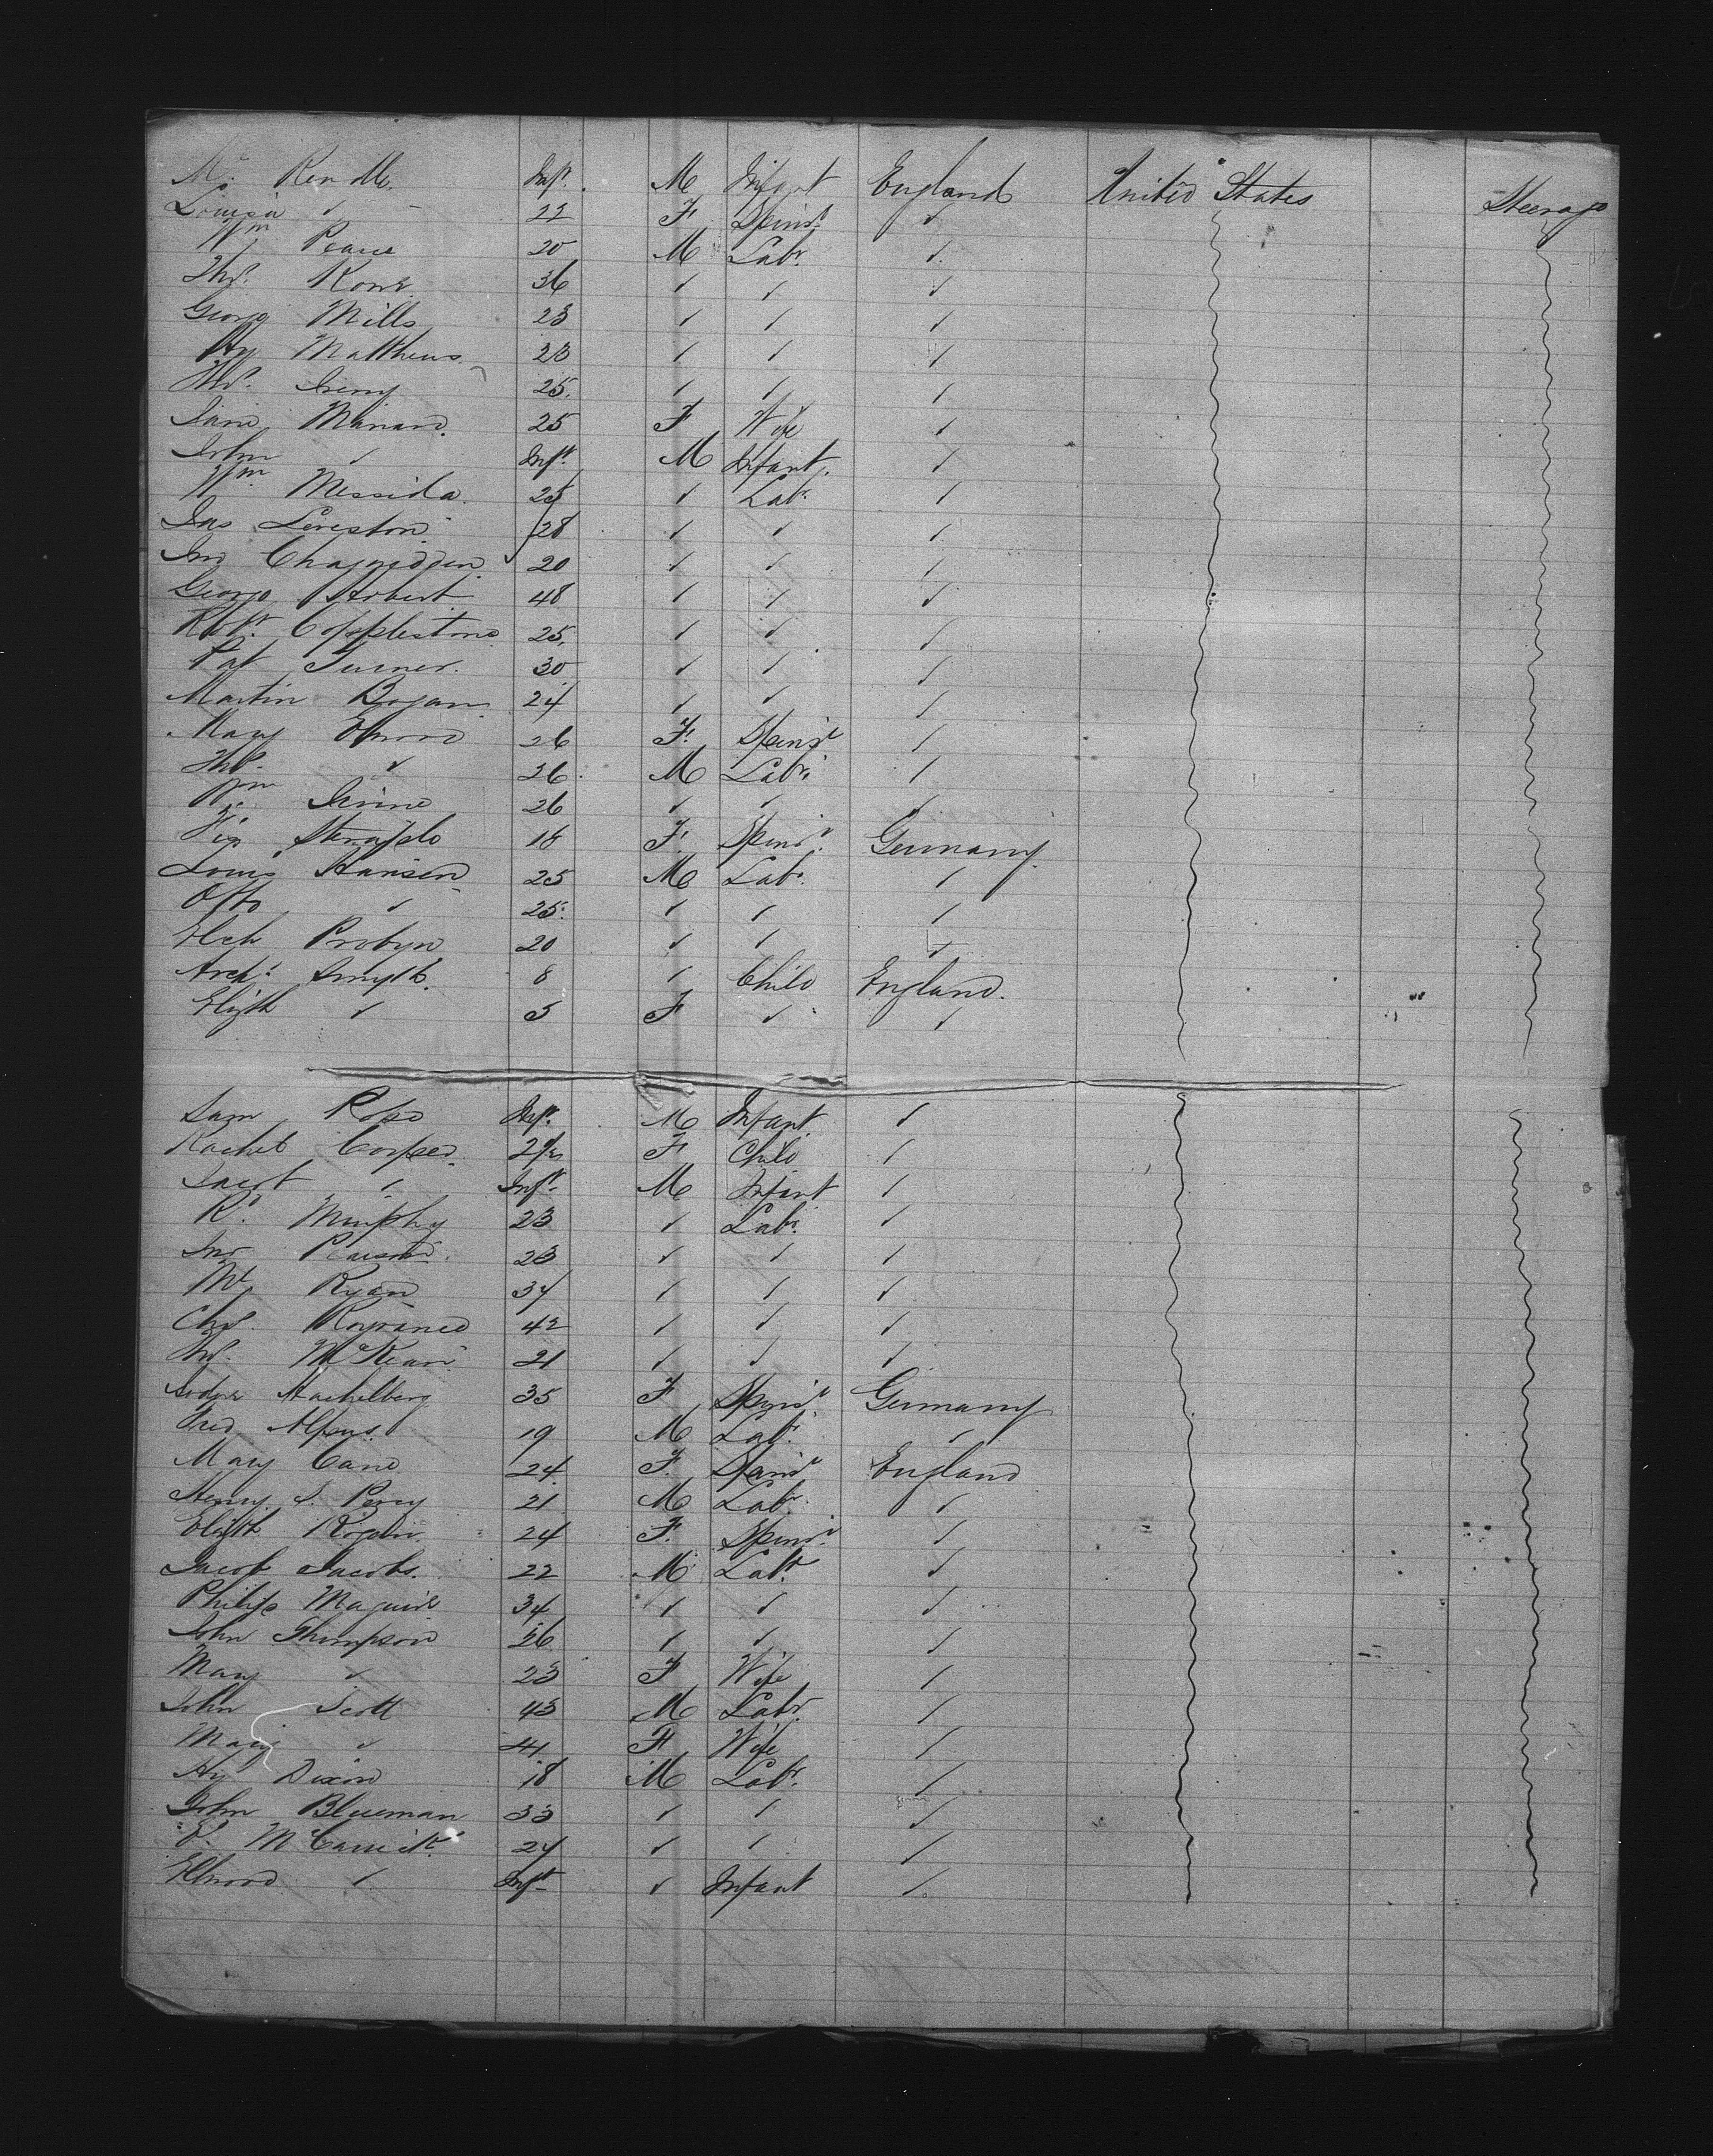 Mc. Rendle. Inft. M Infant England United States Steerage
Louisa ✓ 22 F Spinsr ✓
Wm Pearce 20 M Labr. ✓
Thos. Rowe 36 ✓ ✓ ✓
George Mills 23 ✓ ✓ ✓
Hy Matthews 23 ✓ ✓ ✓
Thos. 25. ✓ ✓ ✓
Jane 25 F Wife ✓
John ✓ Inft. M Infant. ✓
Wm Messida. 25 ✓ Labr. ✓
Jas Leveston 28 ✓ ✓ ✓
Jno 20 ✓ ✓ ✓
George Hobert 48 ✓ ✓ ✓
Robt. Copplestone 25. ✓ ✓ ✓
Pat Turner. 30 ✓ ✓ ✓
Martin Bogan 24 ✓ ✓ ✓
Mary Elwood 26 F. Spinsr ✓
Thos. ✓ 26. M Labr. ✓
Wm 26 ✓ ✓ ✓
18 F. Spinsr. Germany.
Louis Hansen 25 M Labr. ✓
Otto ✓ 25. ✓ ✓ ✓
Probyn 20 ✓ ✓ ✓
Archd. Smyth. 8 ✓ Child England.
Elizth ✓ 5 F ✓ ✓
Sam Inft. M Infant ✓
Rachel Cooper. F Child ✓
Jacob ✓ Inft. M Infant ✓
Rd. Murphy 23 ✓ Labr. ✓
Jno 23 ✓ ✓ ✓
Ml Ryan 34 ✓ ✓ ✓
Chs. 42 ✓ ✓ ✓
McKean 21 ✓ ✓ ✓
Hachelberg 35 F Spinsr. Germany
Fred 19 M Labr. ✓
Mary Cane 24 F. Spinsr England
Henry S. Percy 21 M Labr. ✓
Elizth 24 F. Spinsr. ✓
Jacob Jacobs. 22 M Labr. ✓
Philip Maguire 34 ✓ ✓ ✓
John Thompson 26 ✓ ✓ ✓
Mary ✓ 23 F Wife ✓
John Scott 43 M Labr. ✓
Mary ✓ 41 F Wife ✓
Hy Dixon 18 M Labr. ✓
John Blueman 33 ✓ ✓ ✓
24 ✓ ✓ ✓
Elwood ✓ Inft ✓ Infant ✓